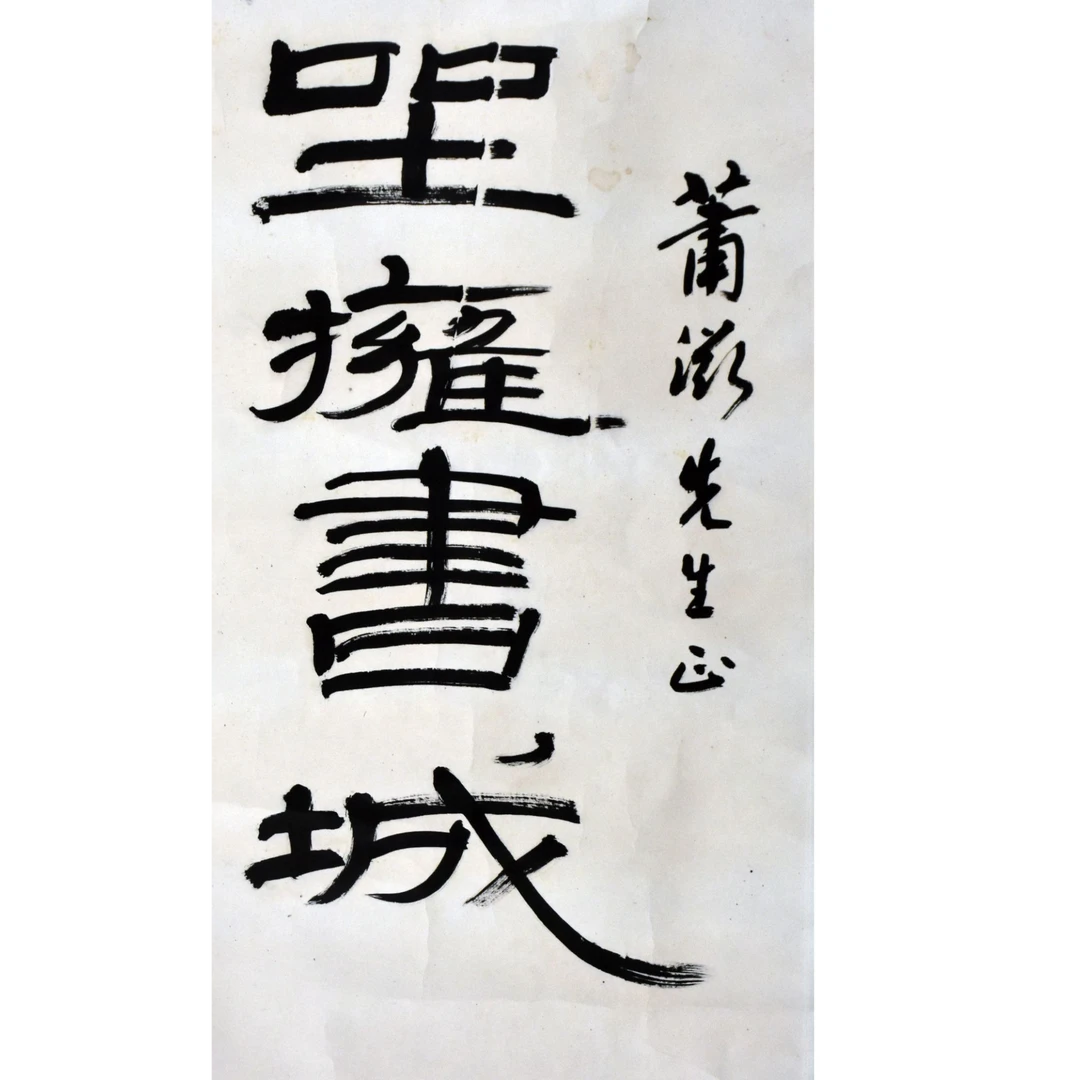 蕭滋先生正
坐擁書城